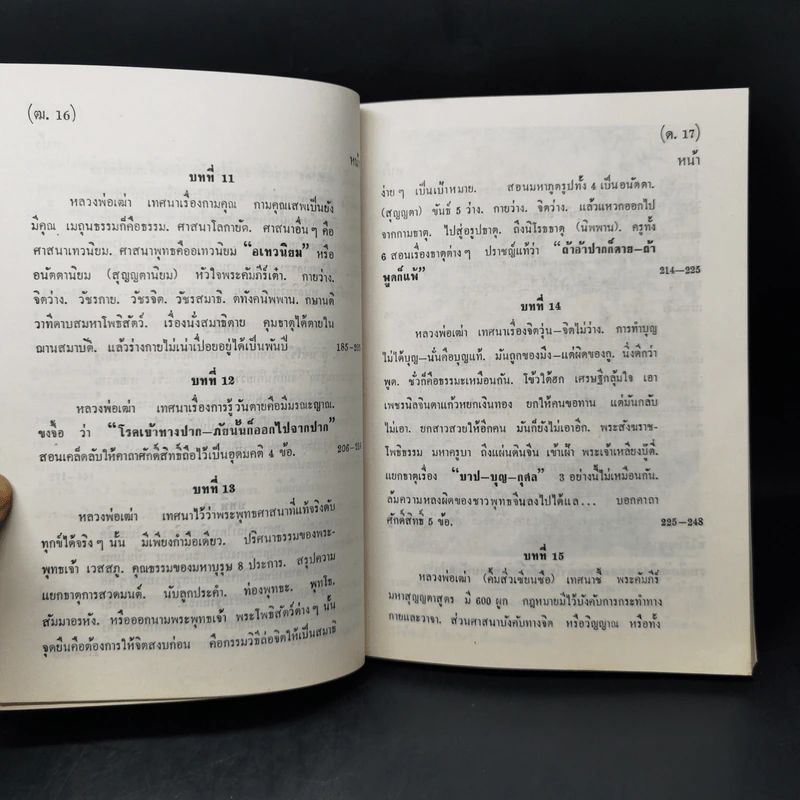 (ฒ. 16)
หน้
บทที่ 11
หลวงพ่อเฒ่า เทศนาเรื่องกามคุณ กามคุณเสพเป็นยัง
มีคุณ เมถุนธรรมก็คือธรรม. ศาสนาโลกายัต. ศาสนาอื่นๆ คือ
ศาสนาเทวนิยม. ศาสนาพุทธคืออเทวนิยม "อเทวนิยม" หรือ
อนัตตานิยม (สุญญตานิยม) หัวใจพระคัมภีร์เต๋า. กายว่าง.
จิตว่าง. วัชรกาย. วัชรจิต. วัชรสมาธิ. ตทังคนิพพาน. กษานติ
วาทีดาบสมหาโพธิสัตว์. เรื่องนั่งสมาธิตาย คุมธาตุได้ตายใน
ฌานสมาบัติ. แล้วร่างกายไม่เน่าเปื่อยอยู่ได้เป็นพันปี 185-20
บทที่ 12
หลวงพ่อเฒ่า เทศนาเรื่องการรู้วันตายคือมีมรณะญาณ.
ขงจื๊อ ว่า "โรคเข้าทางปาก—ภัยนั้นก็ออกไปจากปาก"
สอนเคล็ดลับให้คาถาศักดิ์สิทธิ์ถือไว้เป็นอุดมคติ 4 ข้อ. 206-21
บทที่ 13
หลวงพ่อเฒ่า เทศนาไว้ว่าพระพุทธศาสนาที่แท้จริงดับ
ทุกข์ได้จริงๆ นั้น มีเพียงกำมือเดียว. ปริศนาธรรมของพระ-
พุทธเจ้า เวสสภู. คุณธรรมของมหาบุรุษ 8 ประการ. สรุปความ
แยกธาตุการสวดมนต์. นับลูกประคำ. ท่องพุทธะ. พุทโธ.
สัมมาอรหัง. หรือออกนามพระพุทธเจ้า พระโพธิสัตว์ต่างๆ นั้น
จุดยืนคือต้องการให้จิตสงบก่อน คือกรรมวิธีล่อจิตให้เป็นสมาธิ
(ด. 17)
หน้า
ง่ายๆ เป็นเป้าหมาย. สอนมหาภูตรูปทั้ง 4 เป็นอนัตตา.
(สุญญตา) ขันธ์ 5 ว่าง. กายว่าง. จิตว่าง. แล้วแหวกออกไป
จากกามธาตุ. ไปสู่อรูปธาตุ. ถึงนิโรธธาตุ (นิพพาน). ครูทั้ง
6 สอนเรื่องธาตุต่างๆ ปราชญ์แท้ว่า "ถ้าอ้าปากก็ตาย—ถ้า
พูดก็แพ้" 214—225
บทที่ 14
หลวงพ่อเฒ่า เทศนาเรื่องจิตวุ่น—จิตไม่ว่าง. การทำบุญ
ไม่ได้บุญ—นั่นคือบุญแท้. มันถูกของมึง—แต่ผิดของกู. นิ่งดีกว่า
พูด. ชั่วก็คือธรรมะเหมือนกัน. โข้วใต้ฮก เศรษฐีกลุ้มใจ เอา
เพชรนิลจินดาแก้วหยกเงินทอง ยกให้คนขอทาน แต่มันกลับ
ไม่เอา. ยกสาวสวยให้อีกคน มันก็ยังไม่เอาอีก. พระสังฆราช-
โพธิธรรม มหาครูบา ถึงแผ่นดินจีน เข้าเฝ้า พระเจ้าเหลียงบู๊ตี่.
แยกธาตุเรื่อง "บาป-บุญ-กุศล" 3 อย่างนี้ไม่เหมือนกัน.
ล้มความหลงผิดของชาวพุทธจีนลงไปได้แล... บอกคาถา
ศักดิ์สิทธิ์ 5 ข้อ. 225-248
บทที่ 15
หลวงพ่อเฒ่า (คิ้มสิ่วเซียนซือ) เทศนาชี้ พระคัมภีร์
มหาสุญญตาสูตร มี 600 ผูก กฎหมายมีไว้บังคับการกระทำทาง
กายและวาจา. ส่วนศาสนาบังคับทางจิต หรือวิญญาณ หรือทั้ง